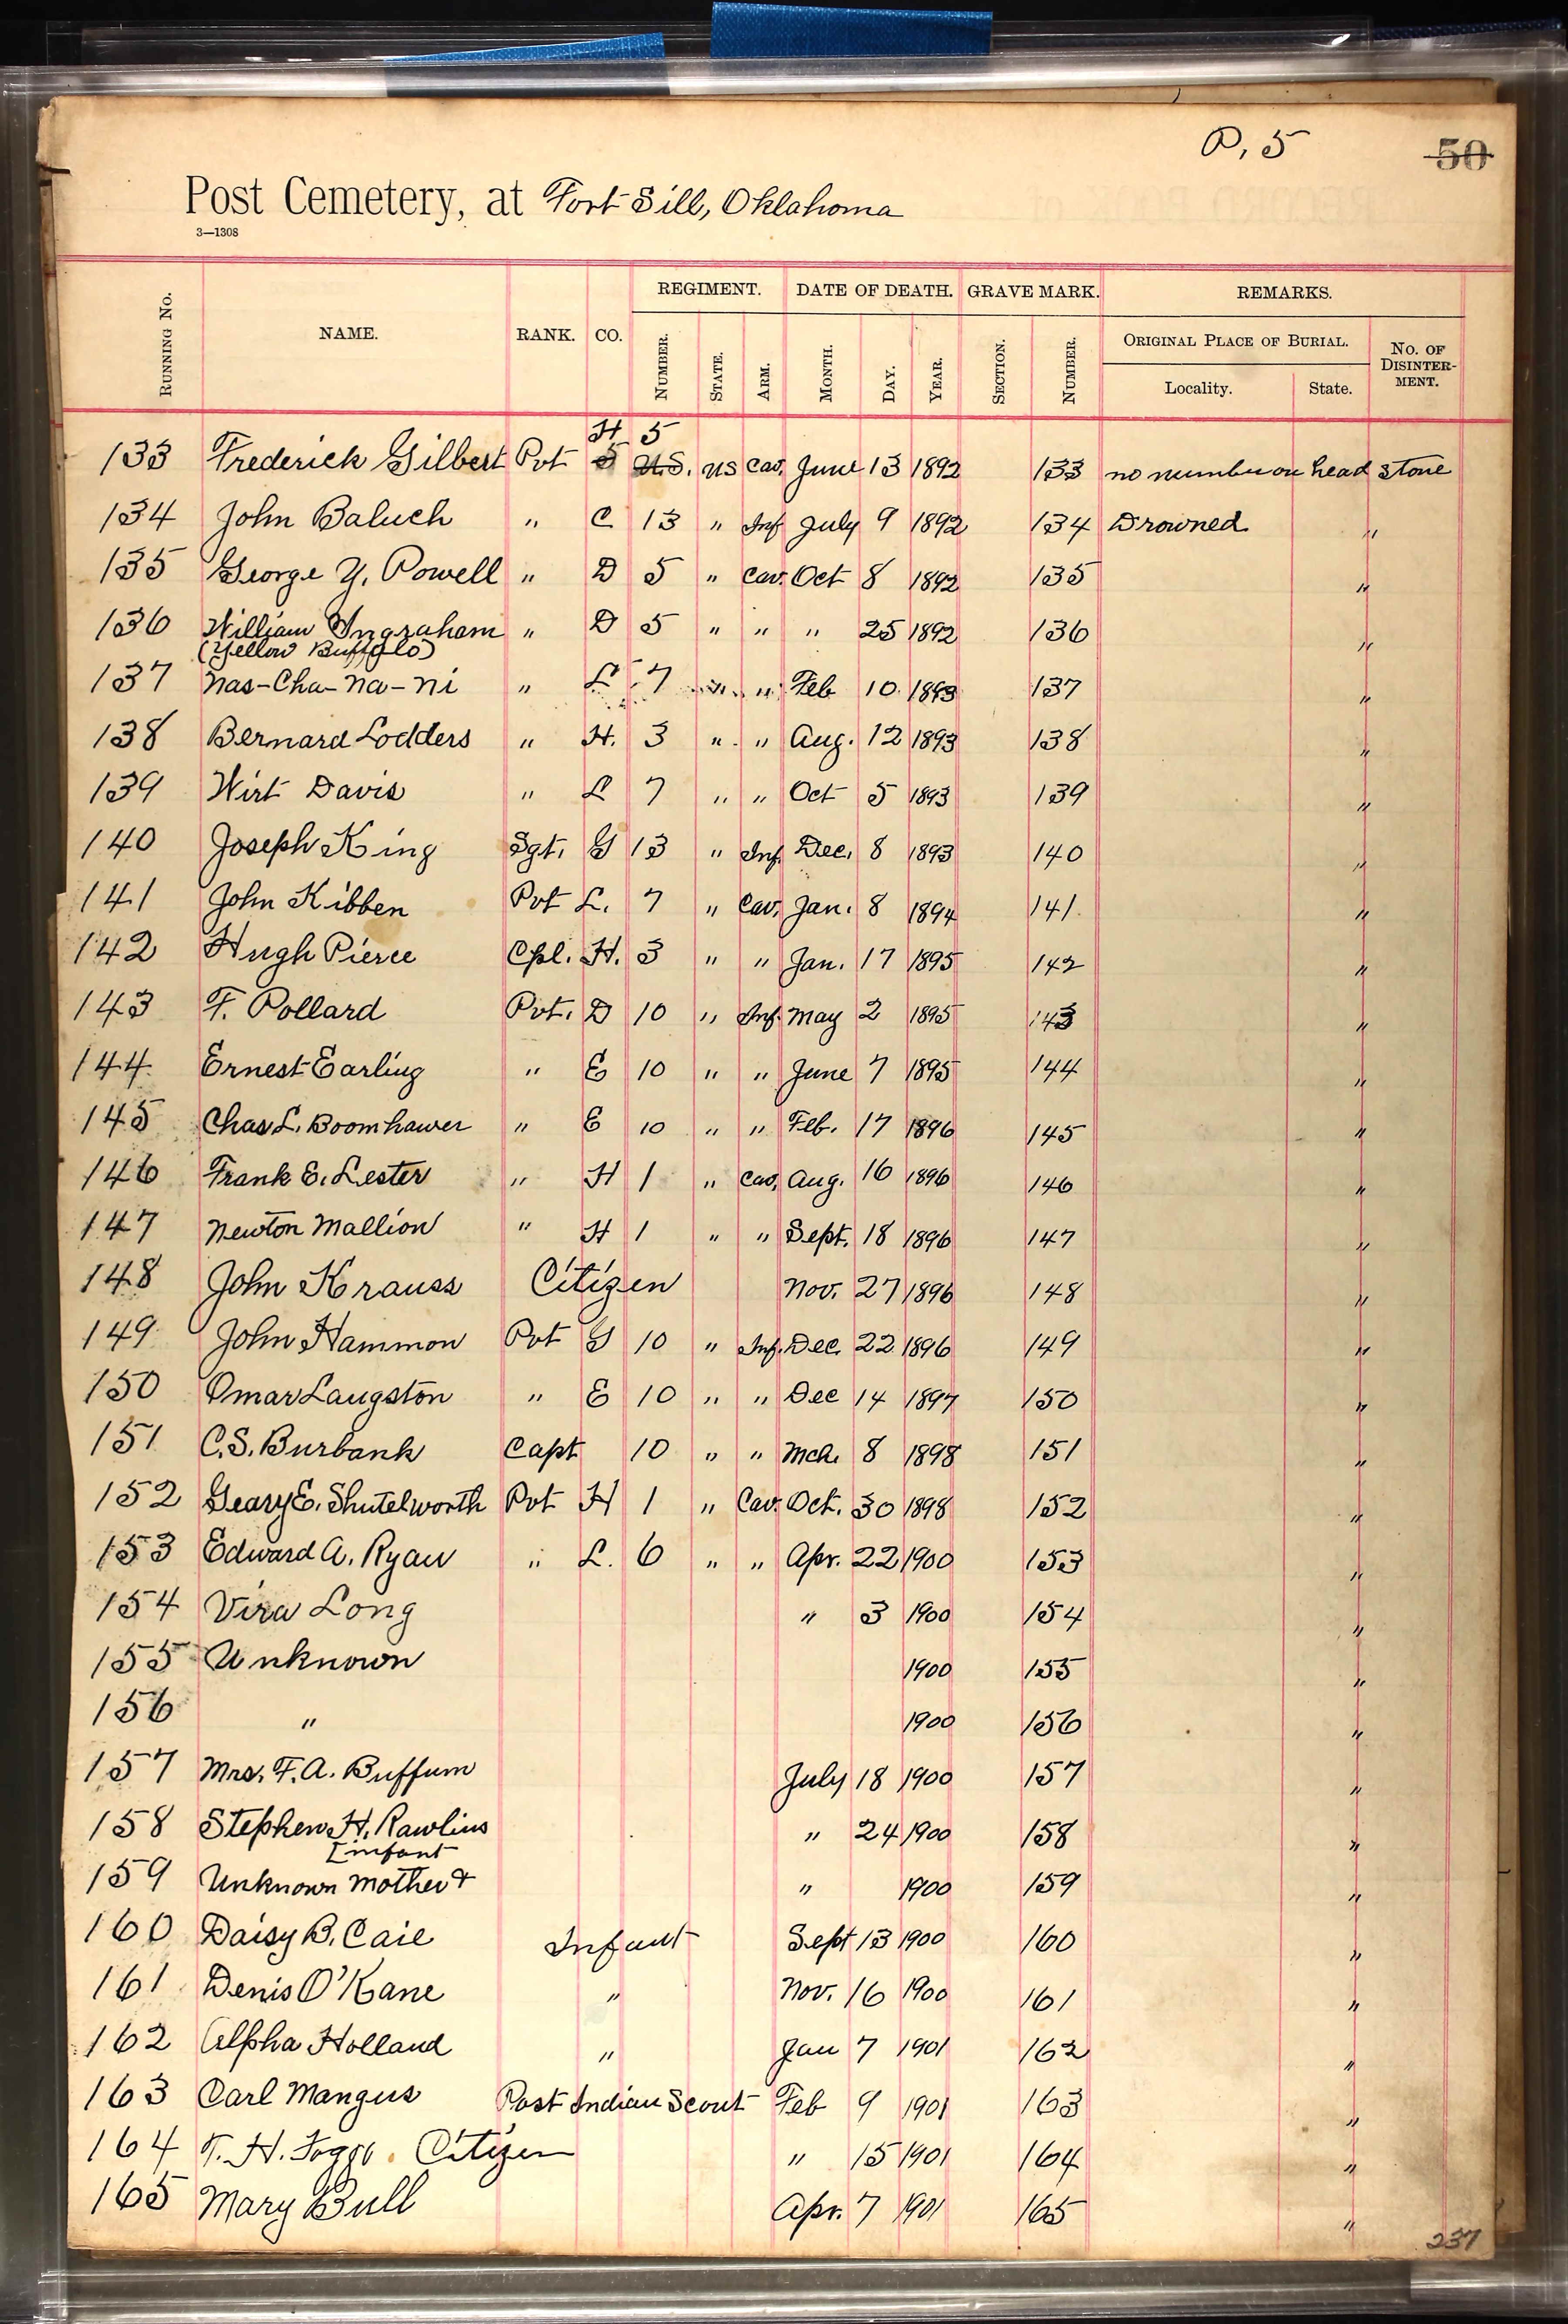 P. 5
50
Post Cemetery, at Fort Sill, Oklahoma
3—1308
RUNNING No. NAME. RANK. CO. REGIMENT. NUMBER. STATE. ARM. DATE OF DEATH. MONTH. DAY. YEAR. GRAVE MARK. SECTION. NUMBER. REMARKS. ORIGINAL PLACE OF BURIAL. Locality. State. No. OF DISINTERMENT.
H 5
133 Frederick Gilbert Pvt 5 U.S. US Cav. June 13 1892 133 no number on head stone
134 John Baluch " C 13 " Inf July 9 1892 134 Drowned "
135 George Y. Powell " D 5 " Cav. Oct 8 1892 135 "
136 William Ingraham " D 5 " " " 25 1892 136 "
(Yellow Buffalo)
137 Nas-Cha-na-ni " L 7 " " Feb 10 1893 137 "
138 Bernard Lodders " H. 3 " " Aug. 12 1893 138 "
139 Wirt Davis " L 7 " " Oct 5 1893 139 "
140 Joseph King Sgt. G 13 " Inf. Dec. 8 1893 140 "
141 John Kibben Pvt L. 7 " Cav. Jan. 8 1894 141. "
142 Hugh Pierce Cpl. H. 3 " " Jan. 17 1895 142 "
143 F. Pollard Pvt. D 10 " Inf. May 2 1895 143 "
144 Ernest Earling " E 10 " " June 7 1895 144 "
145 Chas L. Boomhawer " E 10 " " Feb. 17 1896 145 "
146 Frank E. Lester " H 1 " Cav. Aug. 16 1896 146 "
147 Newton Mallion " H 1 " " Sept. 18 1896 147 "
148 John Krauss Citizen Nov. 27 1896 148 "
149 John Hammon Pvt G 10 " Inf. Dec. 22 1896 149 "
150 Omar Laugston " E 10 " " Dec 14 1897 150 "
151 C.S. Burbank Capt 10 " " Mch. 8 1898 151 "
152 Geary E. Shutelworth Pvt H 1 " Cav. Oct. 30 1898 152 "
153 Edward A. Ryan " L. 6 " " Apr. 22 1900 153 "
154 Vira Long " 3 1900 154 "
155 Unknown 1900 155 "
156 " 1900 156 "
157 Mrs. F. A. Buffum July 18 1900 157 "
158 Stephen H. Rawlins " 24 1900 158 "
[infant
159 Unknown mother & " 1900 159 "
160 Daisy B. Caie Infant Sept 13 1900 160 "
161 Denis O'Kane " Nov. 16 1900 161 "
162 Alpha Holland " Jan 7 1901 162 "
163 Carl Mangus Post Indian Scout Feb 9 1901 163 "
164 T. H. Citizen " 15 1901 164 "
165 Mary Bull Apr. 7 1901 165 "
237